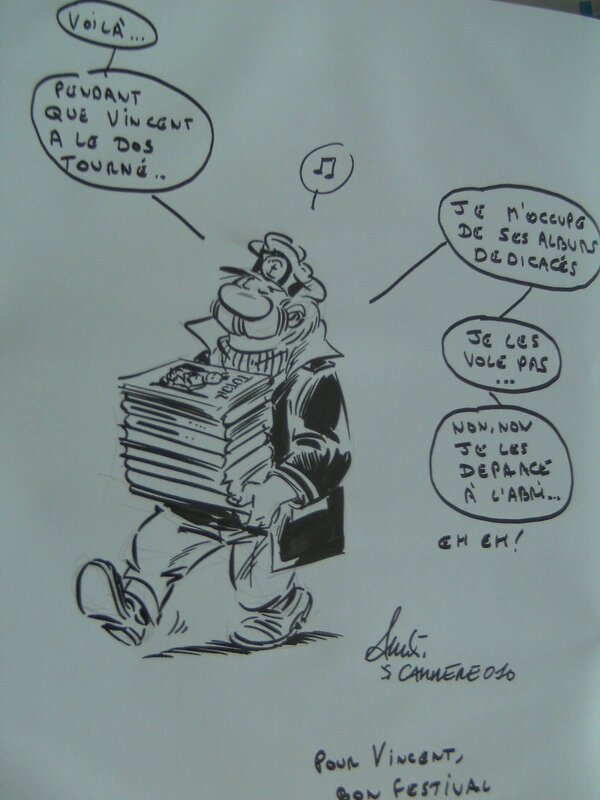 VOILÀ...
PENDANT
QUE VINCENT
A LE DOS
TOURNÉ..
JE M'OCCUPE
DE SES ALBUMS
DEDICACÉS
JE LES
VOLE PAS
...
NON, NON
JE LES
DEPLACE
À L'ABRI...
EH EH!
POUR VINCENT,
BON FESTIVAL